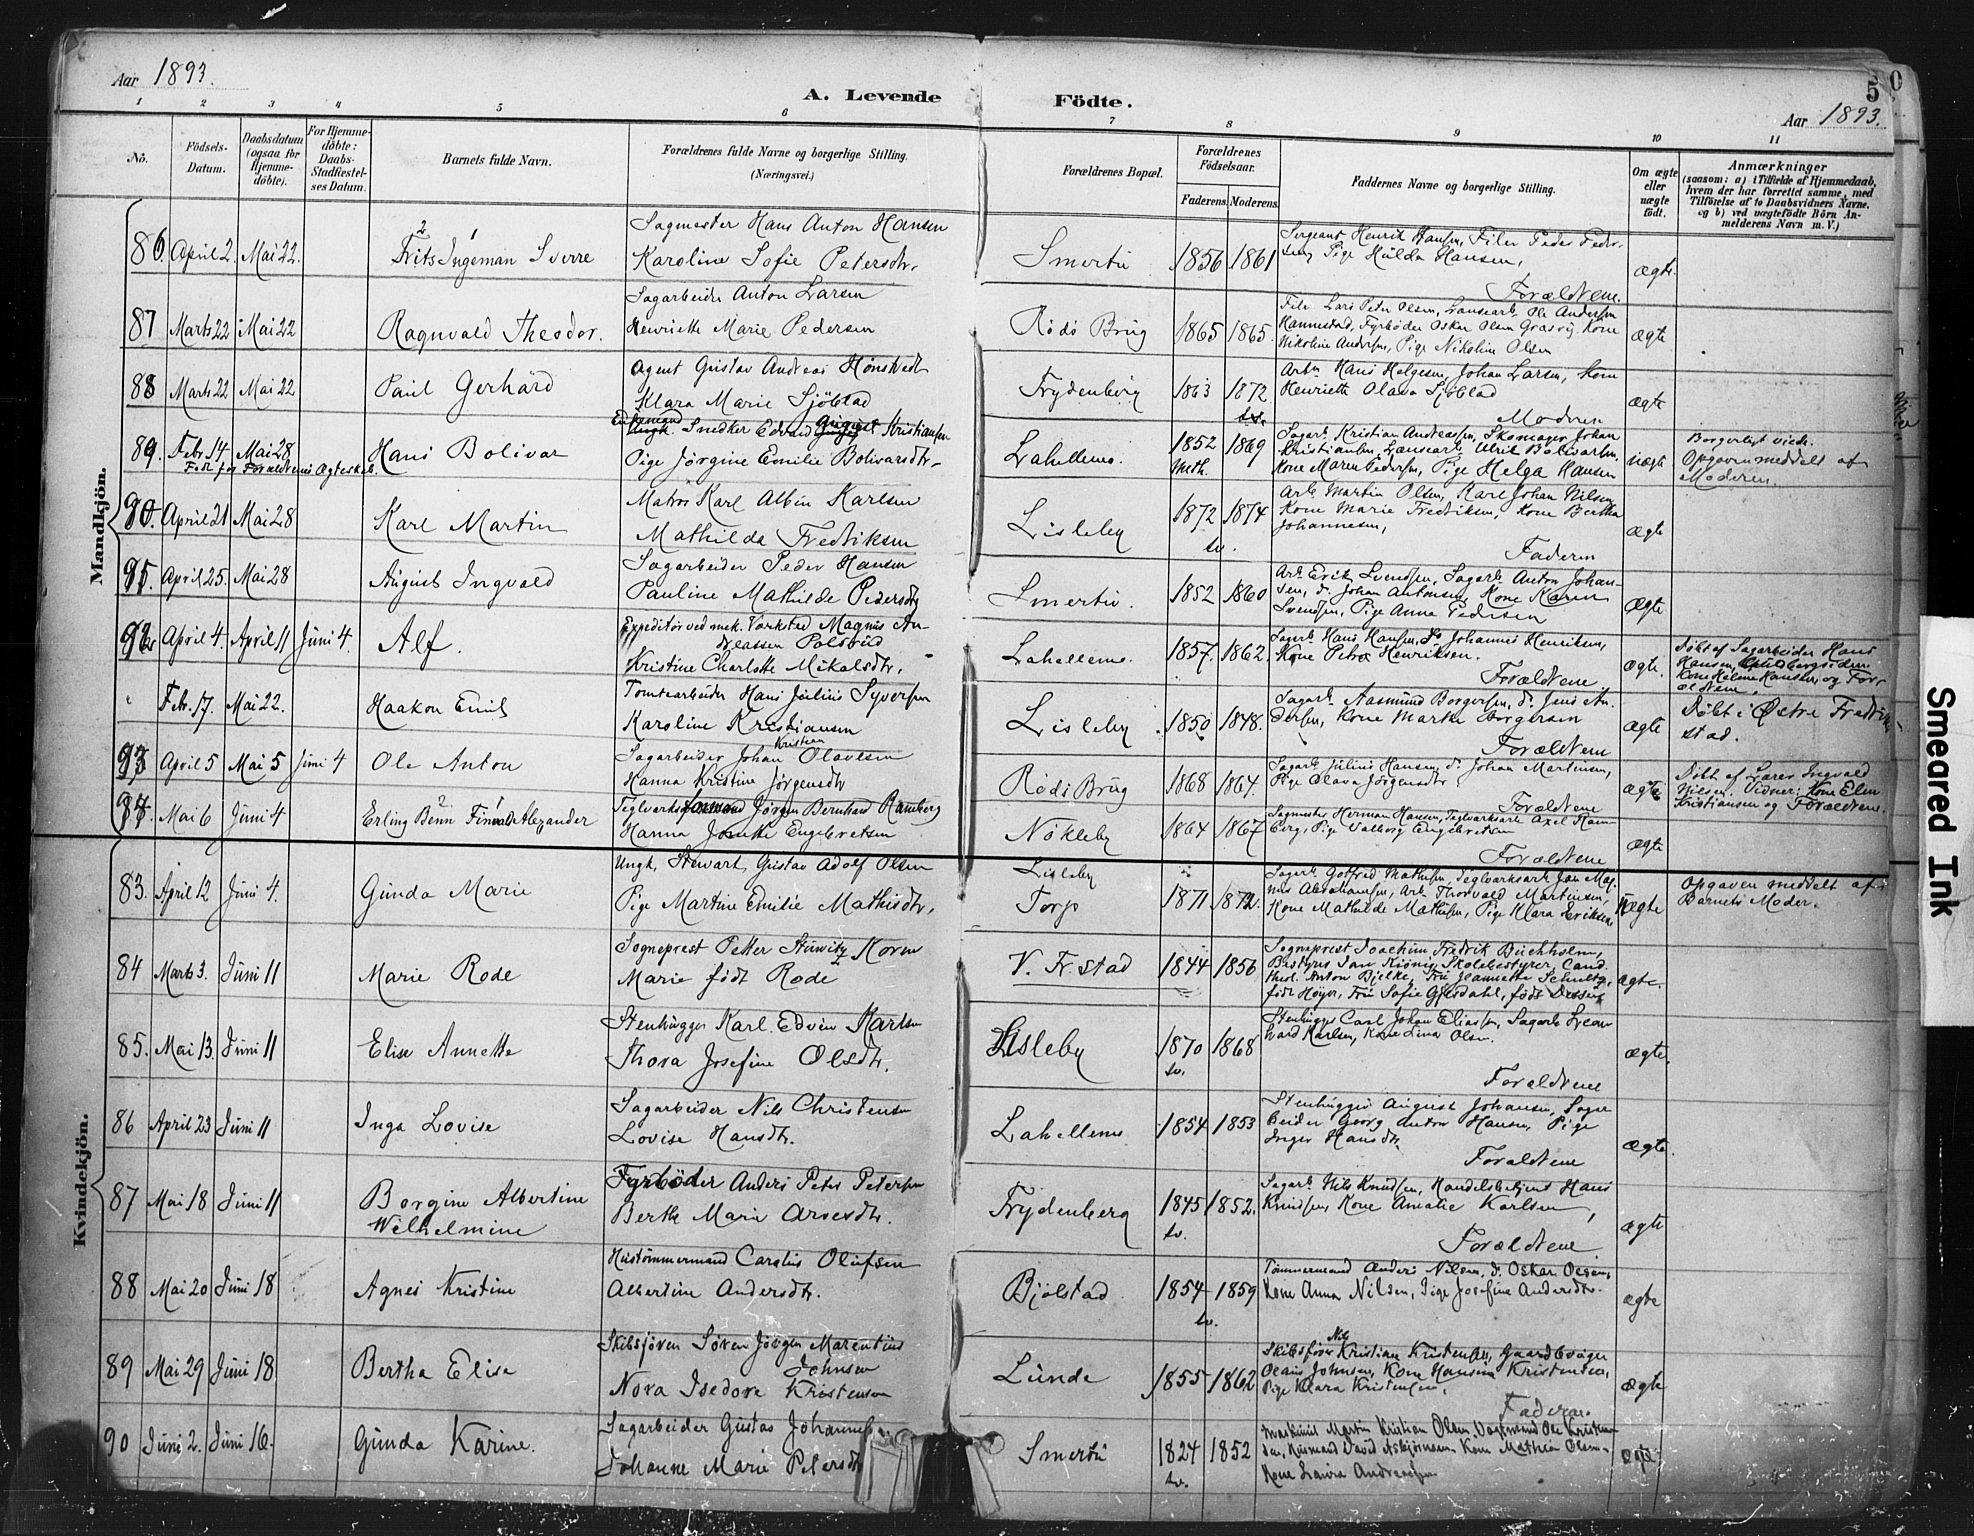 Aar 1893.
A. Levende Födte.
50
Aar 1893.
1 2 3 4 5 6 7 8 9 10 11
No.
Födsels-Datum.
Daabsdatum (ogsaa for Hjemme-döbte).
For Hjemme-döbte: Daabs-Stadfæstel-ses Datum.
Barnets fulde Navn.
Forældrenes fulde Navne og borgerlige Stilling.
(Næringsvei.)
Forældrenes Bopæl.
Forældrenes Födselsaar.
Faderens. Moderens.
Faddernes Navne og borgerlige Stilling.
Om ægte eller uægte födt.
Anmærkninger
(saasom: a) i Tilfælde af Hjemmedaab,
hvem der har forrettet samme, med
Tilföielse af to Daabsvidners Navne,
og b) ved uægtefödte Börn An-
melderens Navn m. V.)
Mandkjön.
86. April 2. Mai 22. Frits Ingeman Sverre
Sagmester Hans Anton Hansen
Karoline Sofie Petersdtr.
Smertu 1856 1861
Sergeant Henrik Hansen, Filer Peder Peder-
sen, Pige Hulda Hansen,
Forældrene.
ægte
87 Marts 22 Mai 22 Ragnvald Theodor.
Sagarbeider Anton Larsen
Henriette Marie Pedersen
Rödö Brug 1865 1865.
Filer Lars Peter Olsen, Lensearb. Ole Andersen
Hannestad, Fyrböder Oskar Olsen Græsvig, Kone
Nikoline Andersen, Pige Nikoline Olsen
ægte
88 Marts 22 Mai 22 Paul Gerhard
Agent Gustav Andreas Hönstvedt
Klara Marie Sjöblad
Frydenberg 1863 1872
Arbm Hans Helgesen, Johan Larsen, Kone
Henriette Olava Sjöblad
Modren
ægte
89. Febr. 14 Mai 28 Hans Bolivar
Födt før Foræeldrenes Ægteskab.
Enkemand Snedker Edvard August Kristiansen
Pige Jörgine Emilie Bolivarsdtr.
Lahellemo. 1852 1869
Meth.
Sagarb. Kristian Andreassen, Skomager Johan
Kristiansen, Lensearb. Ulrik Bolivarsen,
Kone Maren Pedersen, Pige Helga Hansen
uægte
Borgerligt viede.
Opgaven meddelt af
Moderen.
90. April 21 Mai 28 Karl Martin
Matros Karl Albin Karlsen
Mathilda Fredriksen
Lisleby 1872 1874
sv.
Arb. Martin Olsen, Karl Johan Nilsen
Kone Marie Fredriksen, Kone Bertha
Johannesen,
Faderen
ægte
91. April 25. Mai 28 August Ingvald
Sagarbeider Peder Hansen
Pauline Mathilde Pedersdtr
Smertu. 1852 1860
Arb. Erik Svendsen, Sagarb. Anton Johan-
sen, d. Johan Antonsen, Kone Karen
Svendsen, Pige Anna Pedersen
ægte
92. April 4. April 11 Juni 4. Alf.
Expeditör ved mek. Værksted Magnus An-
dreassen Palsrud
Kristine Charlotte Mikalsdtr.
Lahellemo. 1857. 1862.
Sagarb. Hans Hansen, Do Johannes Henriksen,
Kone Petra Henriksen.
Forældrene
ægte.
Döbt af Sagarbeider Hans
Hansen,
Kone Helene Hansen, og For-
ældrene.
Febr. 17. Mai 22. Haakon Emil
Tomtearbeider Hans Julius Syversen
Karoline Kristiansen
Lisleby. 1850 1848.
Sagarb. Aasmund Borgersen, d. Jens An-
dersen, Kone Marte Borgersen
Forældrene
ægte
Döbt i Östre Fredrik-
stad.
93 April 5 Mai 5 Juni 4 Ole Anton
Sagarbeider Johan Kristian Olavesen
Hanna Kristine Jörgensdtr
Rödö Brug 1868 1864.
Sagarb. Julius Hansen, d. Johan Martinsen,
Pige Olava Jörgensdtr
Forældrene
ægte
Döbt af Lærer Ingvald
Nilsen. Vidner: Kone Elen
Kristiansen og Forældrene.
94 Mai 6 Juni 4 Erling Benn Finvald Alexander
Teglværksformand Jörgen Bernhard Ramberg
Hanna Engebretsen
Nökleby 1864 1867
Sagmester Herman Hansen, Teglværksarb. Axel Ram-
berg, Pige Valborg Engebretsen
Forældrene
ægte
Kvindekjön.
83. April 12 Juni 4. Gunda Marie
Ungk. Stewart Gustav Adolf Olsen
Pige Martine Emilie Mathisdtr.
Lisleby
Torp 1871 1872.
Sagarb. Gotfred Mathisen, Teglværksarb. Jan Mag-
nus Abrahamsen, Arb. Thorvald Martinsen,
Kone Mathilde Mathisen, Pige Klara Eriksen
Uægte
Opgaven meddelt af
Barnets Moder.
84 Marts 3. Juni 11 Marie Rode
Sogneprest Petter Stuwitz Koren
Marie födt Rode
V. Fr.stad 1844 1856
Sogneprest Joachim Fredrik Buchholm,
Bestyrer Jan Kiönig, Skolebestyrer, Cand.
theol. Anton Bjelke, Fru Jeannette Schultz,
födt Höyer, Fru Sofie Gjesdahl, födt
ægte.
85. Mai 13. Juni 11 Elise Annette
Stenhugger Karl Edvin Karlsen
Thora Josefine Olsdtr.
Lisleby 1870 1868
sv.
Stenhugger Carl Johan Eliassen, Sagarb. Leon-
hard Karlsen, Kone Lina Olsen.
Forældrene
ægte.
86 April 23 Juni 11 Inga Lovise
Sagarbeider Nils Christensen
Lovise Hansdtr.
Lahellemo 1854 1853
Stenhugger August Johansen, Sagar-
beider Georg Anton Hansen, Pige
Inger Hansdtr.
Forældrene
ægte.
87 Mai 18 Juni 11 Borgine Albertine
Wilhelmine
Fyrböder Anders Peter Petersen
Berthe Marie Arnesdtr.
Frydenberg 1845 1852.
sv.
Sagarb. Nils Knudsen, Handelsbetjent Hans
Knudsen, Kone Amalie Karlsen,
Forældrene
ægte
88 Mai 20 Juni 18 Agnes Kristine
Hustömmermand Carolus Olufsen
Albertine Andersdtr.
Bjölstad 1854 1859
sv.
Tömmermand Anders Nilsen, d. Oskar Olsen,
Kone Anna Nilsen, Pige Josefine Andersdtr.
ægte
89 Mai 29 Juni 18. Bertha Elise
Skibsförer Sören Jörgen Marentius
Johnsen
Nora Isedora Kristensen
Lunde 1855 1862
Skibsförer Nils Kristian Kristensen, Gaardbruger
Olaus Johnsen, Kone Hansine Kristensen,
Pige Klara Kristensen,
Faderen.
ægte
90 Juni 2. Juni 16. Gunda Karine.
Sagarbeider Gustav Johannesen
Johanne Marie Petersdtr
Smertu 1824 1852
sv.
Maskinist Martin Kristian Olsen, Ole Kristen-
sen, Husmand David Asbjörnsen, Kone Mathea Olsen,
Kone Laura Andreassen
ægte
Smeared Ink